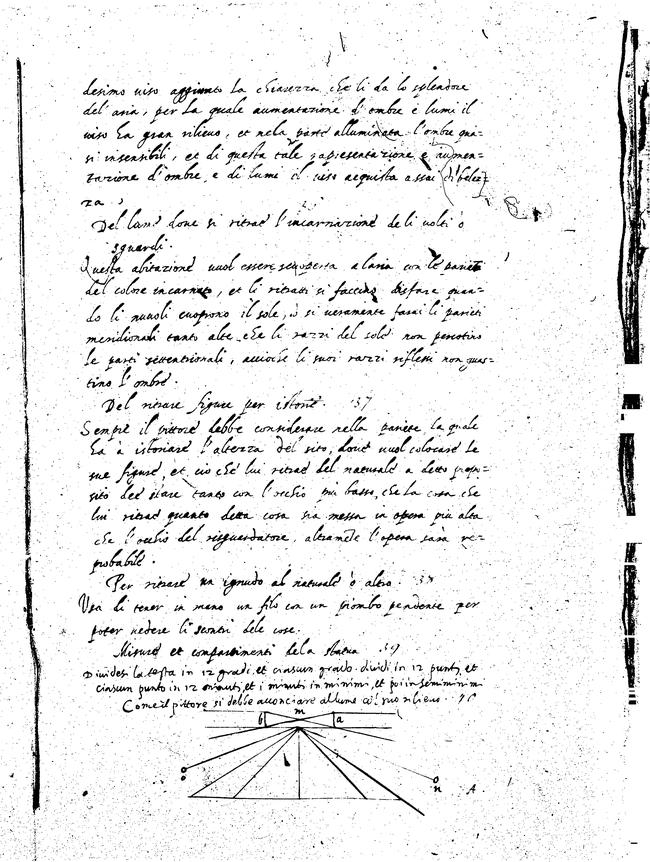 desimo uiso aggiunto la chiarezza, che li da lo splendore
del'aria, per la quale aumentazione d'ombre e lumi il
uiso ha gran rilieuo, et nela parte alluminata l'ombre qua=
si insensibili, et di questa tale rapresentazione e aumen=
tazione d'ombre, e di lumi il uiso acquista assai di belez=
za.
8
Del lume doue si ritrae l'incarnazione deli uolti ò
ignudi.
Questa abitazione uuol essere scoperta alaria con le pariete
del colore incarnato, et li ritratti si faccino d'estate quan=
do li nuuoli cuoprono il sole, ò si ueramente farai li parieti
meridionali tanto alte, che li razzi del sole non percotino
le parti settentrionali, accioche li suoi razzi riflessi non guas=
tino l'ombre.
Del ritrare figure per istorie. 37
Sempre il pittore debbe considerare nella pariete, la quale
ha à istoriare l'altezza del sito, doue uuol colocare le
sue figure, et ciò che lui ritrae del naturale a detto propo=
sito dee stare tanto con l'occhio più basso, che la cosa che
lui ritrae quanto detta cosa sia messa in opera più alta
che l'occhio del risguardatore, altramẽte l'opera sara re=
probabile.
Per ritrare un ignudo al naturale ò altro. 38
Usa di tener in mano un filo con un piombo pendente per
poter uedere li scontri dele cose.
Misure et compartimenti dela statua. 39
Diuidesi la testa in 12 gradi, et ciascun grado diuidi in 12 punti, et
ciascun punto in 12 minuti, et i minuti in minimi, et poi in seminimi.
Come il pittore si debbe acconciare al lume col suo rilieuo. 40
b m a
n A